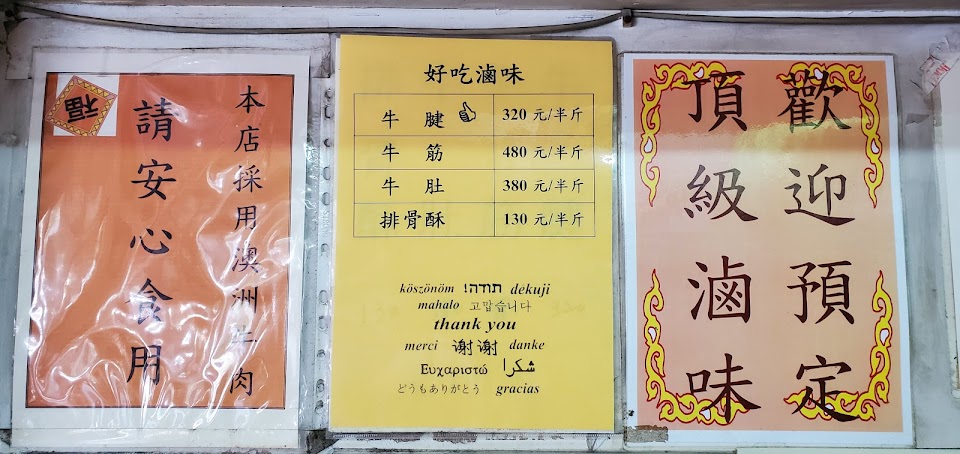 福
本店採用澳洲牛肉
請安心食用
好吃滷味
牛腱 320 元/半斤
牛筋 480 元/半斤
牛肚 380 元/半斤
排骨酥 130 元/半斤
köszönöm תודה! dekuji
mahalo 고맙습니다
thank you
merci 谢谢 danke
Ευχαριστώ شكرا
どうもありがとう gracias
歡迎預定
頂級滷味